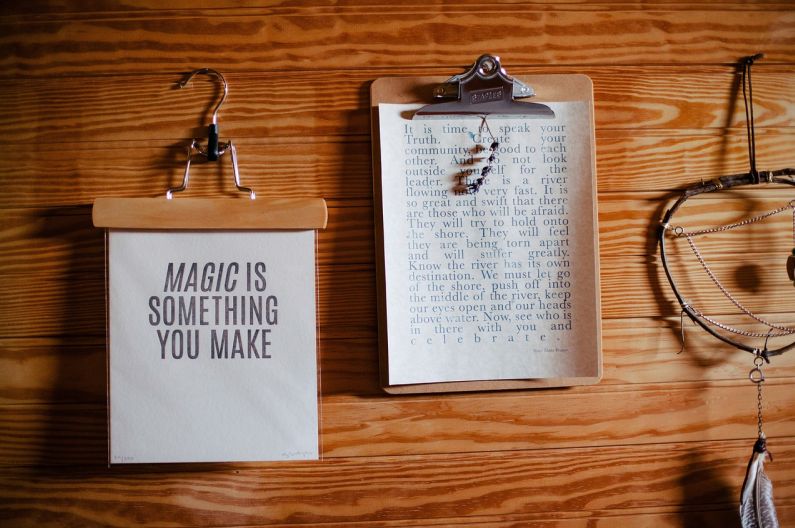 MAGIC IS
SOMETHING
YOU MAKE
STAPLES
It is time to speak your
Truth. Create your
community, be good to each
other. And do not look
outside yourself for the
leader. There is a river
flowing now very fast. It is
so great and swift that there
are those who will be afraid.
They will try to hold onto
the shore. They will feel
they are being torn apart
and will suffer greatly.
Know the river has its own
destination. We must let go
of the shore, push off into
the middle of the river, keep
our eyes open and our heads
above water. Now, see who is
in there with you and
celebrate.